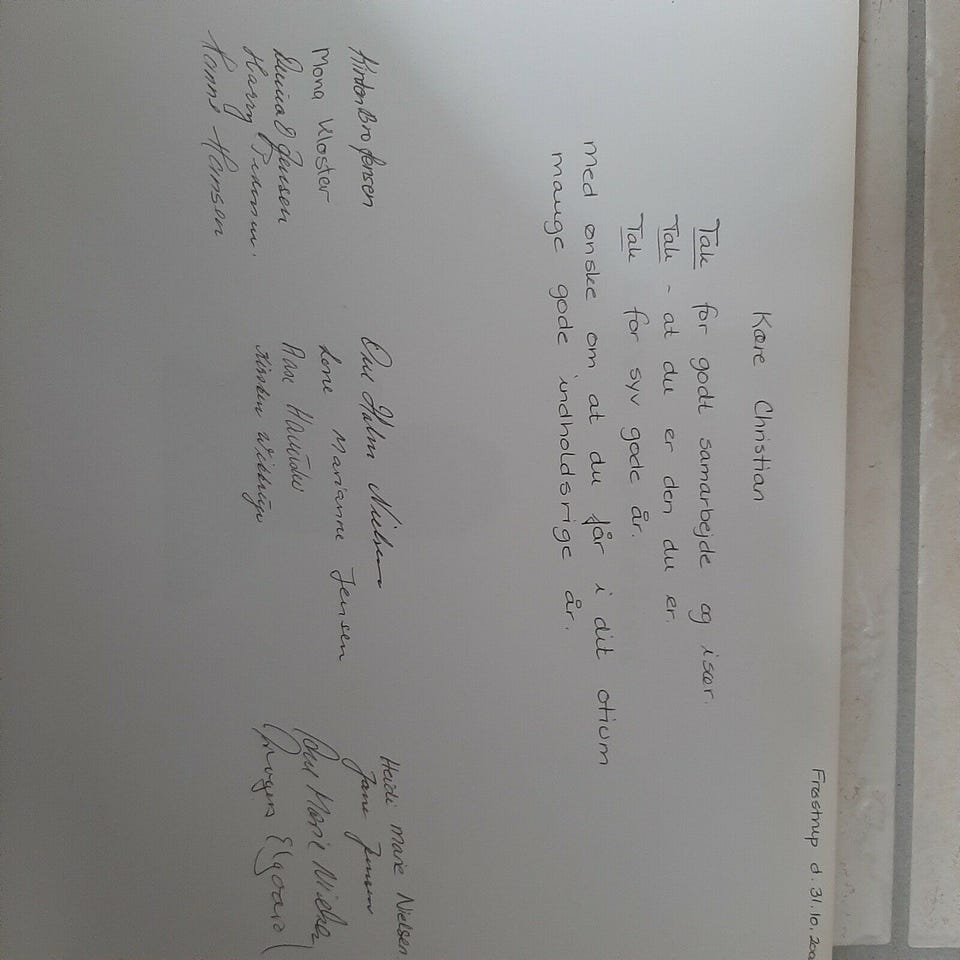 Frøstrup d. 31.10.200
Kære Christian
Tak for godt samarbejde og især.
Tak - at du er den du er.
Tak for syv gode år.
Med ønske om at du får i dit otium
mange gode indholdsrige år.
Kirsten Bro Jensen
Mona Kloster
Jensen
Harry
Hanne Hansen
Holm Nielsen
Lene Marianne Jensen
Kirsten
Heidi Marie Nielsen
Jane Jensen
Marie
Mogens Elgaard